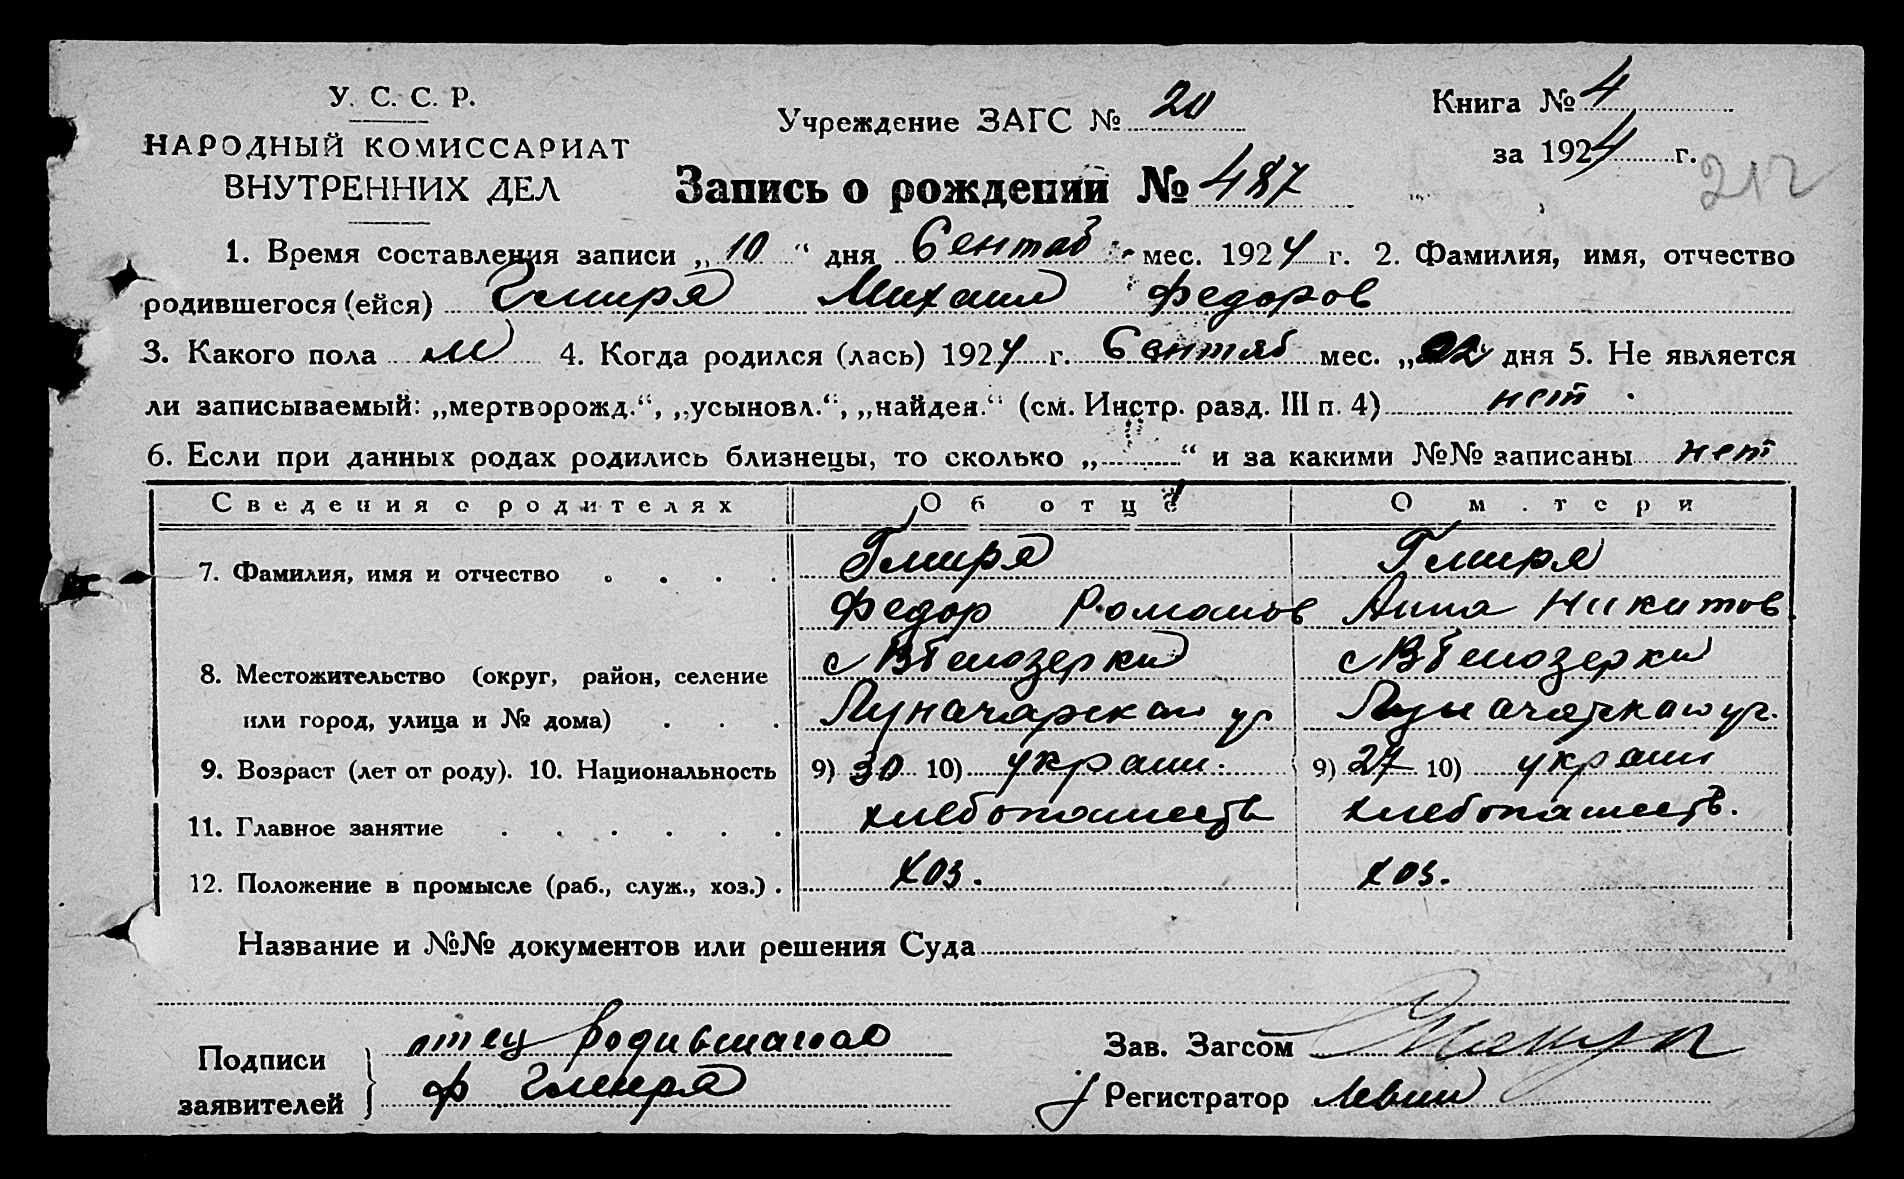 У. С. С. Р.
НАРОДНЫЙ КОМИССАРИАТ
ВНУТРЕННИХ ДЕЛ
Учреждение ЗАГС № 20
Книга № 4
за 1924 г.
212
Запись о рождении № 487
1. Время составления записи „10“ дня Сентяб. мес. 1924 г. 2. Фамилия, имя, отчество
родившегося (ейся) Гмиря Михаил Федоров
3. Какого пола м 4. Когда родился (лась) 1924 г. Сентяб мес. „02“ дня 5. Не является
ли записываемый: „мертворожд.“, „усыновл.“, „найден.“ (см. Инстр. разд. III п. 4) нет
6. Если при данных родах родились близнецы, то сколько „ “ и за какими №№ записаны нет
Сведения о родителях Об отце О м.тери
7. Фамилия, имя и отчество Гмиря Гмиря
Федор Романов Анна Никитов
8. Местожительство (округ, район, селение с Белозерки с Белозерки
или город, улица и № дома) Луначарская ул Луначарская ул.
9. Возраст (лет от роду). 10. Национальность 9) 30 10) украин. 9) 27 10) украин
11. Главное занятие хлебопашеств хлебопашеств.
12. Положение в промысле (раб., служ., хоз.) хоз. хоз.
Название и №№ документов или решения Суда
Подписи заявителей отец родившагося
Ф Гмиря
Зав. Загсом
Регистратор Левин